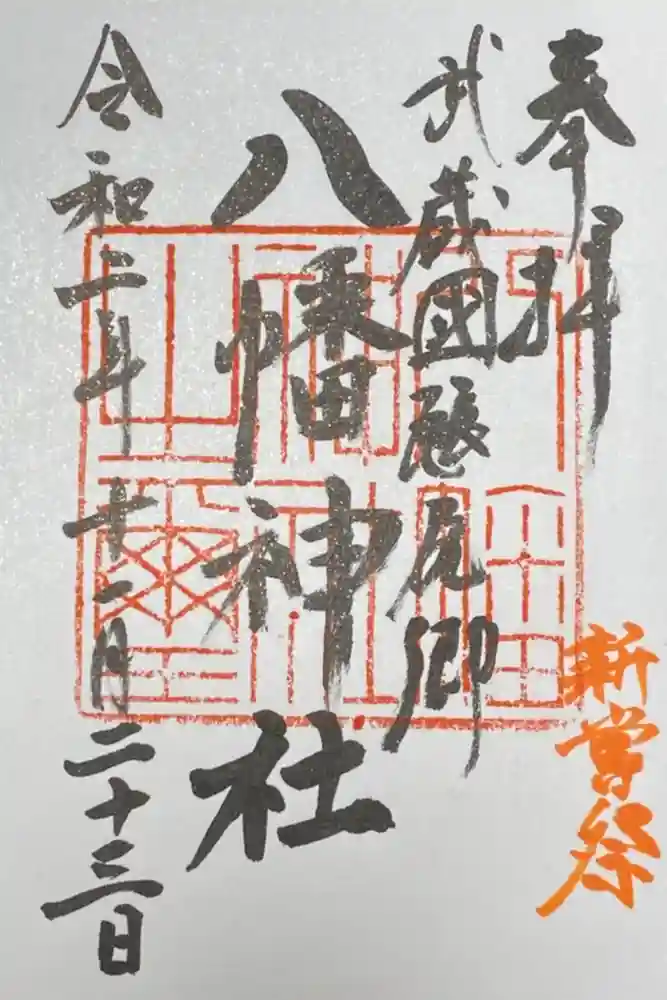 奉拝
武蔵國
八幡神社
令和二年十一月二十三日
新嘗祭